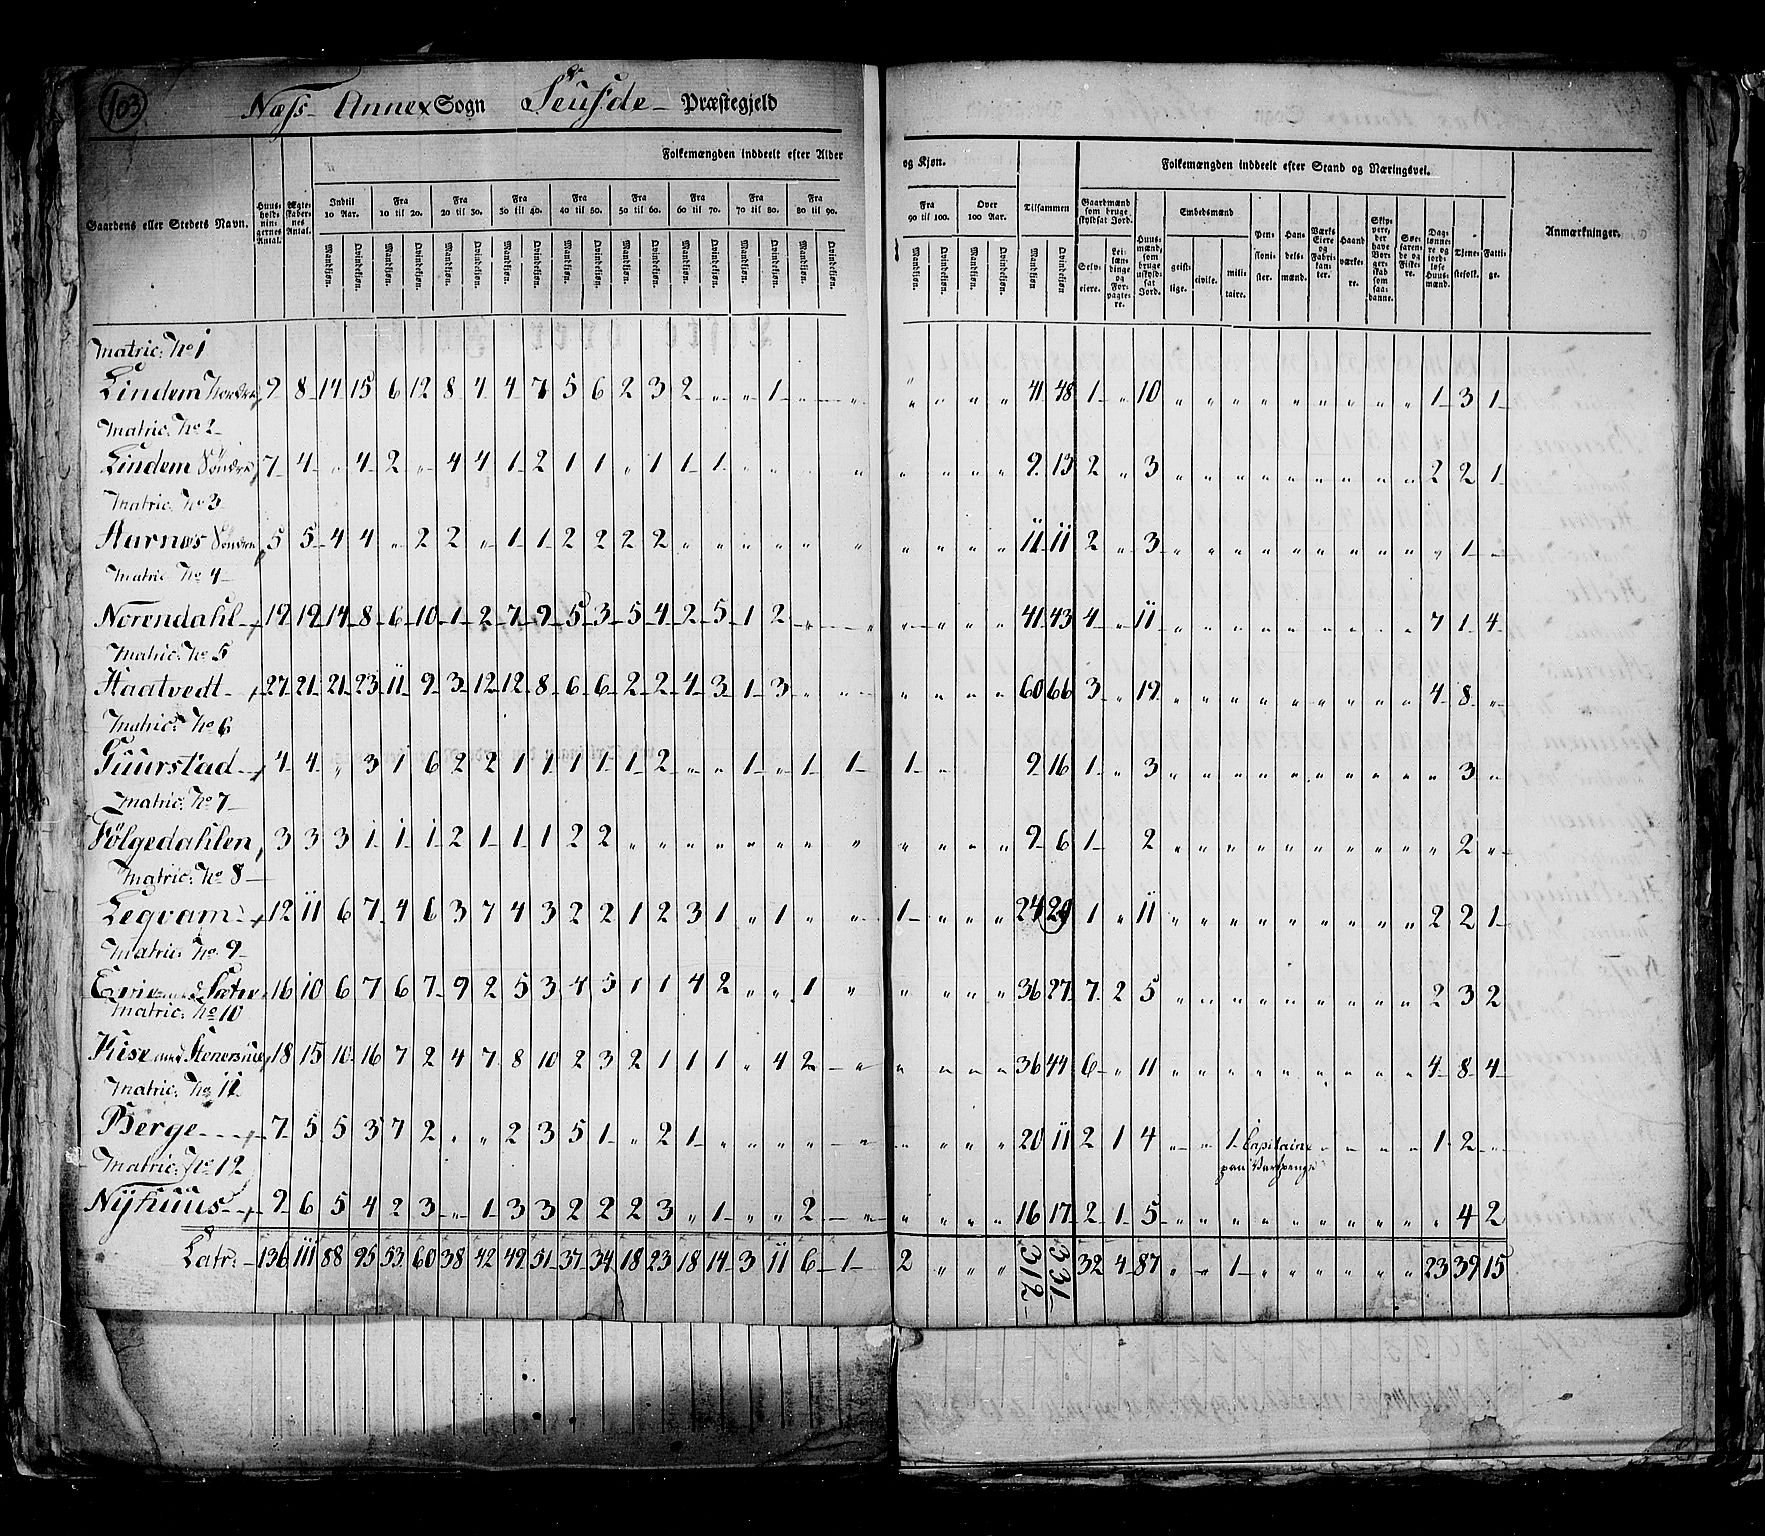 103
Næss Annex Sogn Seufde Præstegjeld
Folkemængden inddeelt efter Alder og Kjøn.
Folkemængden inddeelt efter Stand og Næringsvei.
Gaardens eller Stedets Navn. Huusholdningernes Antal. Ægteskabernes Antal. Indtil 10 Aar. Fra 10 til 20. Fra 20 til 30. Fra 30 til 40. Fra 40 til 50. Fra 50 til 60. Fra 60 til 70. Fra 70 til 80. Fra 80 til 90. Fra 90 til 100. Over 100 Aar. Tilsammen Gaardmænd som bruge skyldsat Jord. Huusmænd, som bruge uskyldsat Jord. Embedsmænd Pensionister. Handelsmænd. Værkseiere og Fabrikanter. Haandværkere. Skippere, der have Borgerskab som saadanne. Søefarende og Fiskere. Daglønnere og jordløse Huusmænd. Tjenestefolk. Fattige. Anmærkninger.
Mandkjøn. Qvindekjøn. Mandkjøn. Qvindekjøn. Mandkjøn. Qvindekjøn. Mandkjøn. Qvindekjøn. Mandkjøn. Qvindekjøn. Mandkjøn. Qvindekjøn. Mandkjøn. Qvindekjøn. Mandkjøn. Qvindekjøn. Mandkjøn. Qvindekjøn. Mandkjøn. Qvindekjøn. Mandkjøn. Qvindekjøn. Mandkjøn. Qvindekjøn. Selveiere. Leilændinge og Forpagtere. geistlige. civile. militaire.
Matric: No 1
Lindem Nordre 9 8 14 15 6 12 8 4 4 7 5 6 2 3 2 „ „ 1 „ „ „ „ „ „ 41 48 1 „ 10 „ „ „ „ „ „ „ „ „ 1 3 1
Matric: No 2
Lindem Söndre 7 4 „ 4 2 „ 4 4 1 2 1 1 „ 1 1 1 „ „ „ „ „ „ „ „ 9 13 2 „ 3 „ „ „ „ „ „ „ „ „ 2 2 1
Matric: No 3
Aarnes Söndre 5 5 4 4 „ 2 2 „ 1 1 2 2 2 2 „ „ „ „ „ „ „ „ „ „ 11 11 2 „ 3 „ „ „ „ „ „ „ „ „ „ 1 „
Matric: No 4
Norendahl 19 19 14 8 6 10 1 2 7 9 5 3 5 4 2 5 1 2 „ „ „ „ „ „ 41 43 4 „ 11 „ „ „ „ „ „ „ „ „ 7 1 4
Matric: No 5
Haatvedt 27 21 21 23 11 9 3 12 12 8 6 6 2 2 4 3 1 3 „ „ „ „ „ „ 60 66 3 „ 19 „ „ „ „ „ „ „ „ „ 4 8 „
Matric: No 6
Guurstad 4 4 „ 3 1 6 2 2 1 1 1 1 1 2 „ „ 1 „ 1 1 1 „ „ „ 9 16 1 „ 3 „ „ „ „ „ „ „ „ „ „ 3 „
Matric: No 7
Fölgedahlen 3 3 3 1 1 1 2 1 1 1 2 2 „ „ „ „ „ „ „ „ „ „ „ „ 9 6 1 2 „ „ „ „ „ „ „ „ „ „ 2 „
Matric: No 8
Legvam 12 11 6 7 4 6 3 7 4 3 2 2 1 2 3 1 „ 1 „ „ 1 „ „ „ 24 29 1 „ 11 „ „ „ „ „ „ „ „ „ 2 2 1
Matric: No 9
Evrie med Sæter 16 10 6 7 6 7 9 2 5 3 4 5 1 1 4 2 „ „ 1 „ „ „ „ „ 36 27 7 2 5 „ „ „ „ „ „ „ „ „ 2 3 2
Matric: No 10
Kise med Stenersrue 18 15 10 16 7 2 4 7 8 10 2 3 2 1 1 1 „ 4 2 „ „ „ „ „ 36 44 6 „ 11 „ „ „ „ „ „ „ „ „ 4 8 4
Matric: No 11
Berge 7 5 5 3 7 2 „ „ 2 3 5 1 „ 2 1 „ „ „ „ „ „ „ „ „ 20 11 2 1 4 „ „ 1 Capitaine „ „ „ „ 1 2 „
Matric: No 12
Nÿhuus 9 6 5 4 2 3 „ 1 3 3 2 2 2 3 „ 1 „ „ 2 „ „ „ „ „ 16 17 2 1 5 „ „ „ „ „ „ „ „ „ „ 4 2
Latr: 136 111 88 95 53 60 38 42 49 51 37 34 18 23 18 14 3 11 6 1 2 „ „ „ 312 331 32 4 87 „ „ 1 „ „ „ „ „ „ 23 39 15